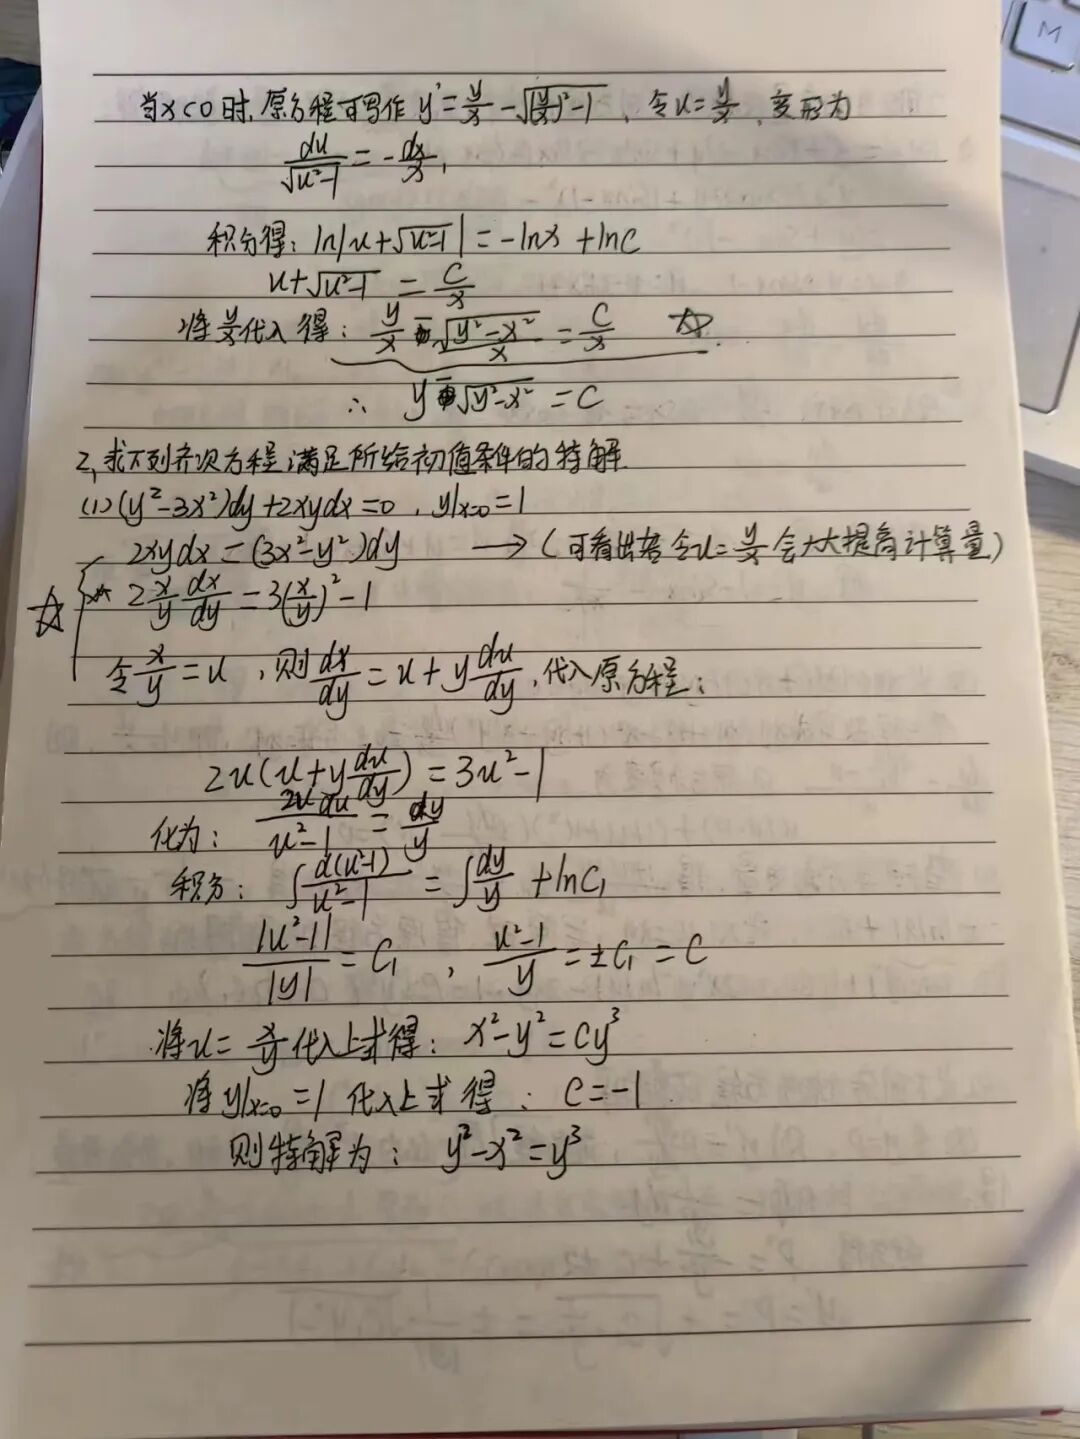 当x<0时,原方程可写作 y'=y/x-√((y/x)²-1), 令u=y/x, 变形为
du/√(u²-1)=-dx/x,
积分得: ln|u+√(u²-1)|=-lnx+lnC
u+√(u²-1)=C/x
将y/x代入得: y/x-√(y²-x²)/x=C/x ☆
∴ y-√(y²-x²)=C
2,求下列齐次方程满足所给初值条件的特解
(1)(y²-3x²)dy+2xydx=0, y|x=0=1
2xydx=(3x²-y²)dy →(可看出若令u=y/x会大大提高计算量)
☆ 2 x/y dx/dy=3(x/y)²-1
令x/y=u,则dx/dy=u+y du/dy,代入原方程:
2u(u+y du/dy)=3u²-1
化为: 2udu/(u²-1)=dy/y
积分: ∫d(u²-1)/(u²-1)=∫dy/y+lnC₁
|u²-1|/|y|=C₁, (u²-1)/y=±C₁=C
将u=x/y代入上式得: x²-y²=Cy³
将y|x=0=1代入上式得: C=-1
则特解为: y²-x²=y³
M